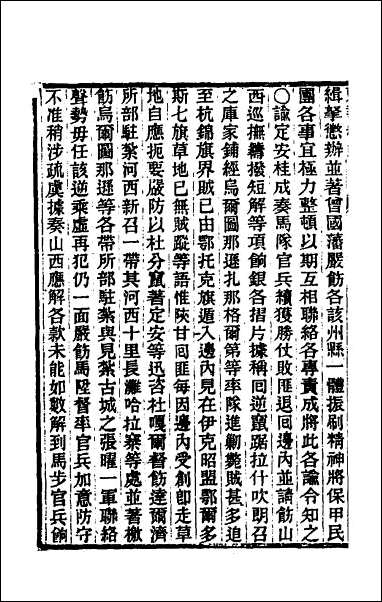 緝拏懲辦並著曾國藩嚴飭各該州縣一體振刷精神將保甲民
團各事宜極力整頓以期互相聯絡各專責成將此各諭令知之
○諭定安桂成奏馬隊官兵續獲勝仗敗匪退回邊內並請飭山
西巡撫續撥短解等項餉銀各摺片據稱回逆竄踞拉什吹朗召
之庫家鋪經烏爾圖那遜扎那格爾第等率隊進勦斃賊甚多追
至杭錦旗界賊已由鄂托克旗遁入邊內見在伊克昭盟鄂爾多
斯七旗草地已無賊蹤等語惟陝甘回匪每因邊內受創卽走草
地自應扼要嚴防以杜分竄著定安等迅咨杜嘎爾督飭達爾濟
所部駐紮河西新召一帶其河西十里長灘哈拉寨等處並著檄
飭烏爾圖那遜等各帶所部駐紮與見紮古城之張曜一軍聯絡
聲勢毋任該逆乘虛再犯仍一面嚴飭馬陞督率官兵如意防守
不准稍涉疏虞據奏山西應解各款未能如數解到馬步官兵餉